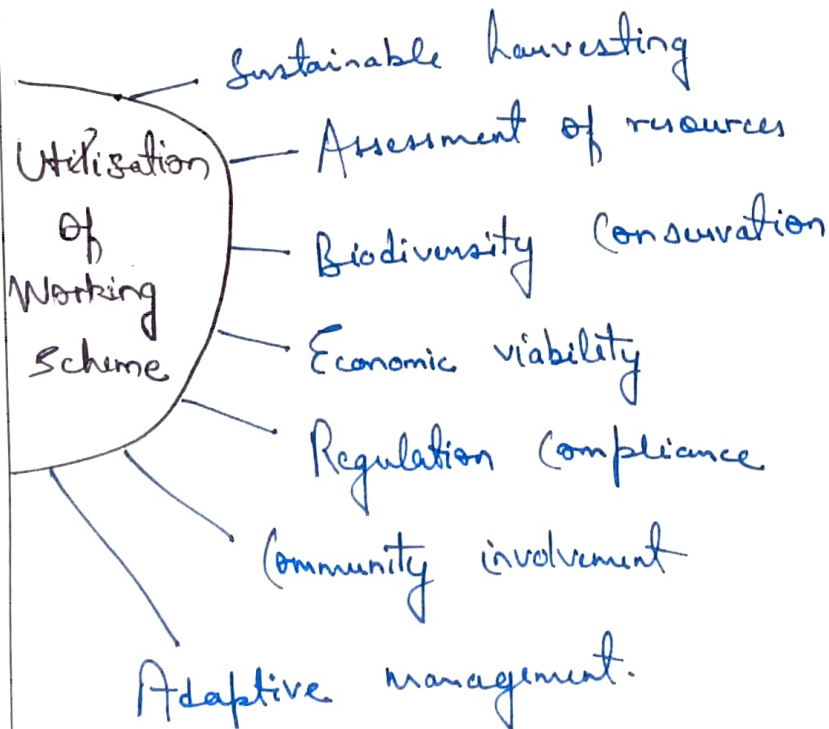 Utilisation
of
Working
Scheme
Sustainable harvesting
Assessment of resources
Biodiversity Conservation
Economic viability
Regulation Compliance
Community involvement
Adaptive management.